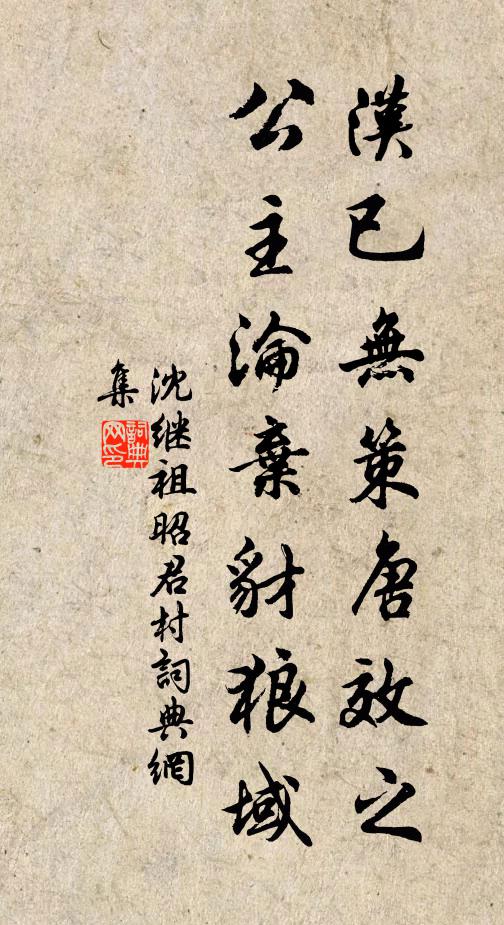 漢已無策唐效之
公主淪棄豺狼域
沈继祖昭君村詞典網
集
詞典
网印